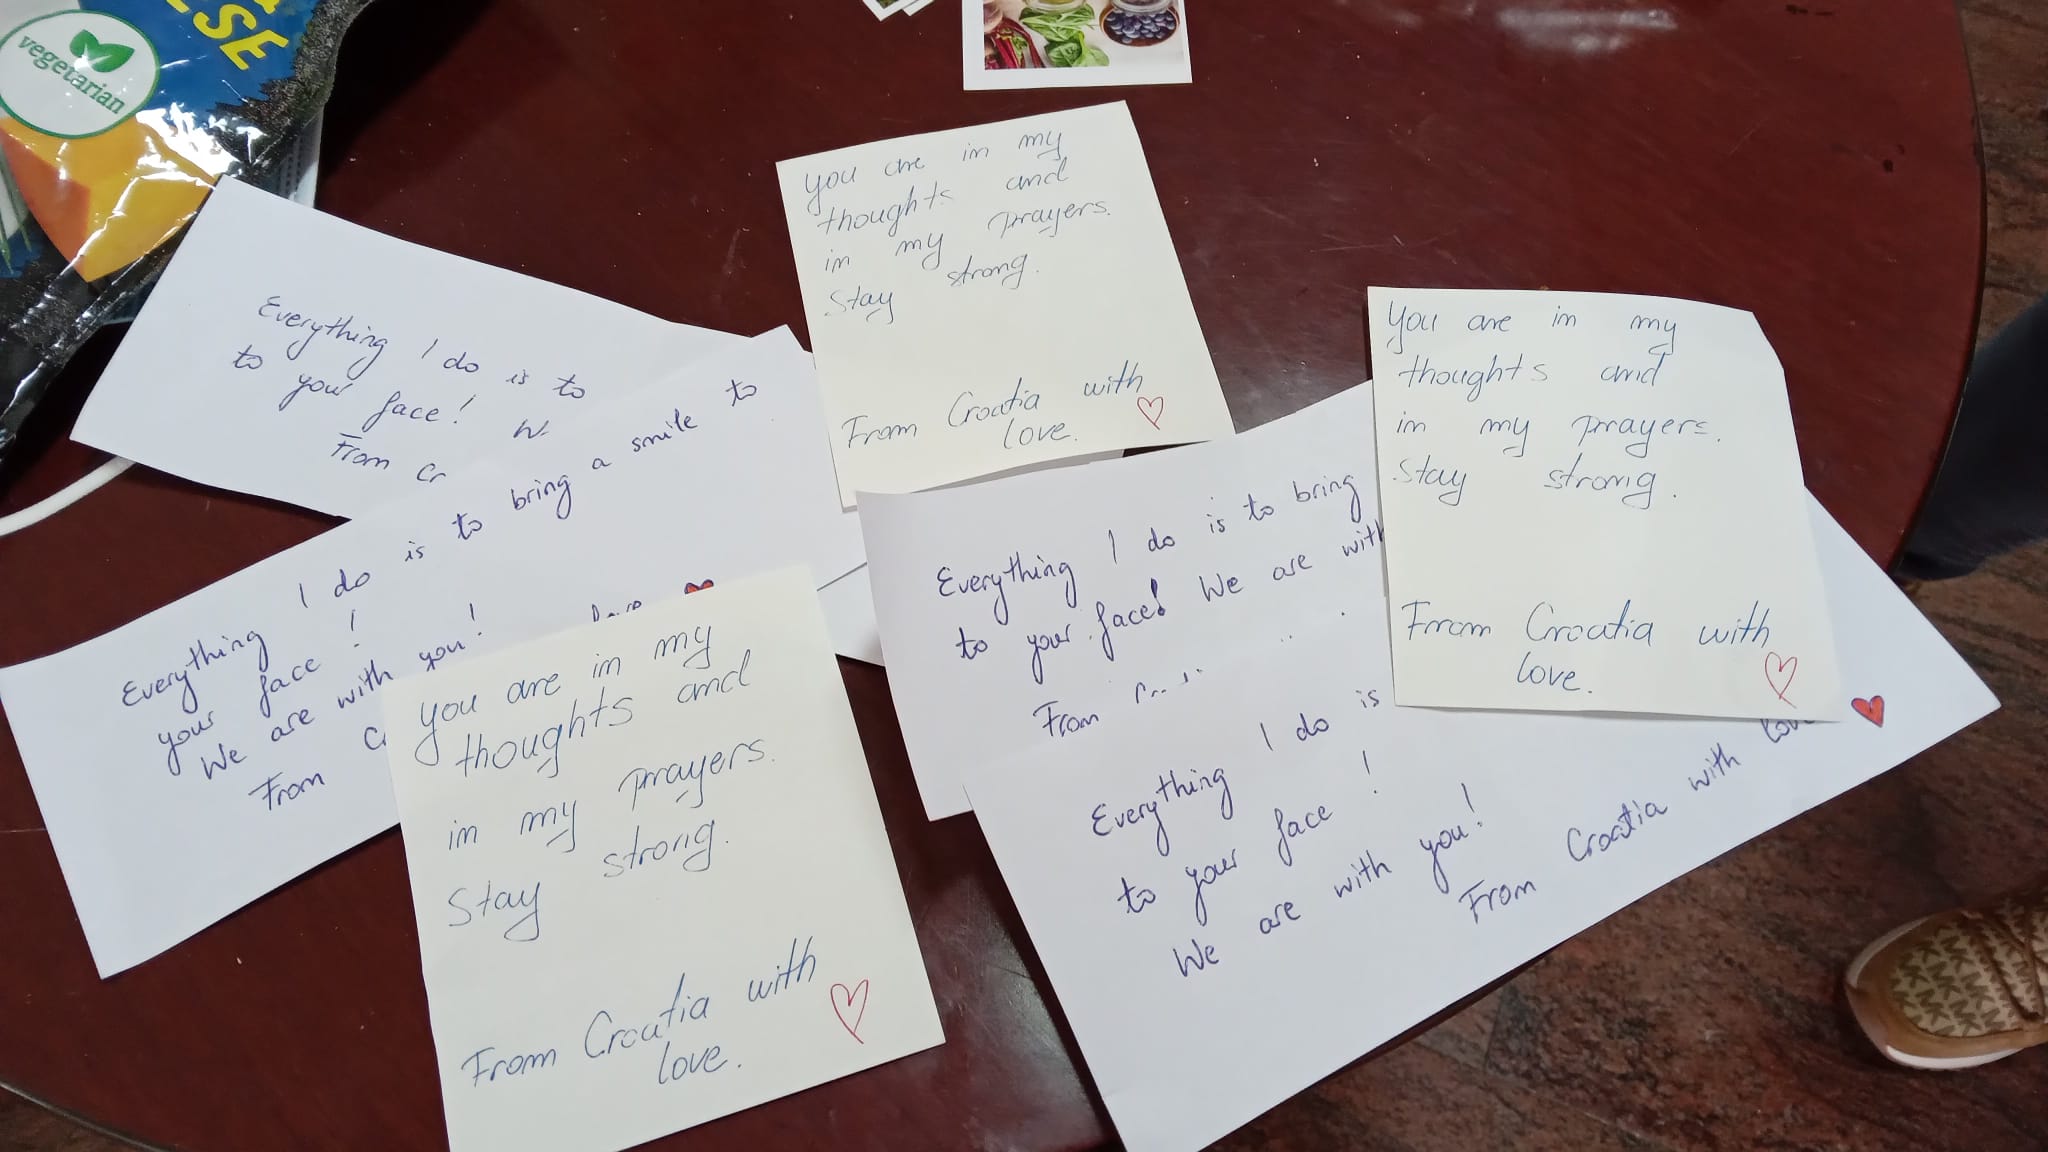 SE
vegetarian
you are in my
thoughts and
in my prayers.
Stay strong.
From Croatia with
love.
Everything I do is to
to your face!
From
You are in my
thoughts and
in my prayers.
Stay strong.
From Croatia with
love.
Everything I do is to bring a smile to
your face!
We are with you!
From
love
Everything I do is to bring
to your face! We are with
From
you are in my
thoughts and
in my prayers.
Stay strong.
From Croatia with
love.
Everything I do is
to your face!
We are with you!
From Croatia with love